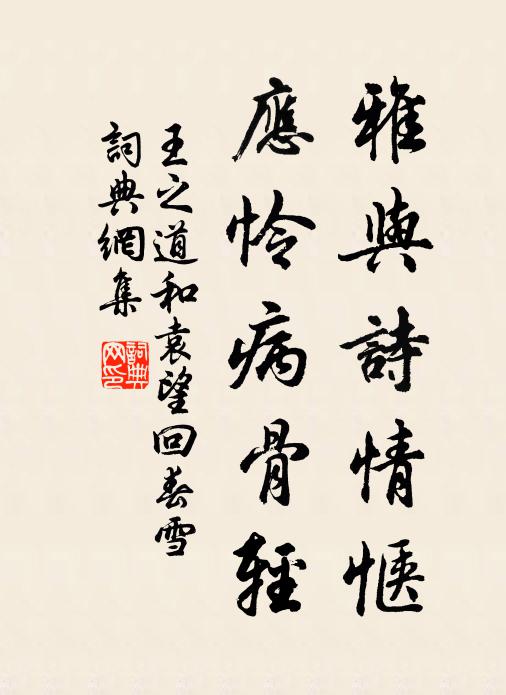 雅與詩情愜
應怜病骨輕
王之道和袁望回春雪
詞典網集
詞典网印